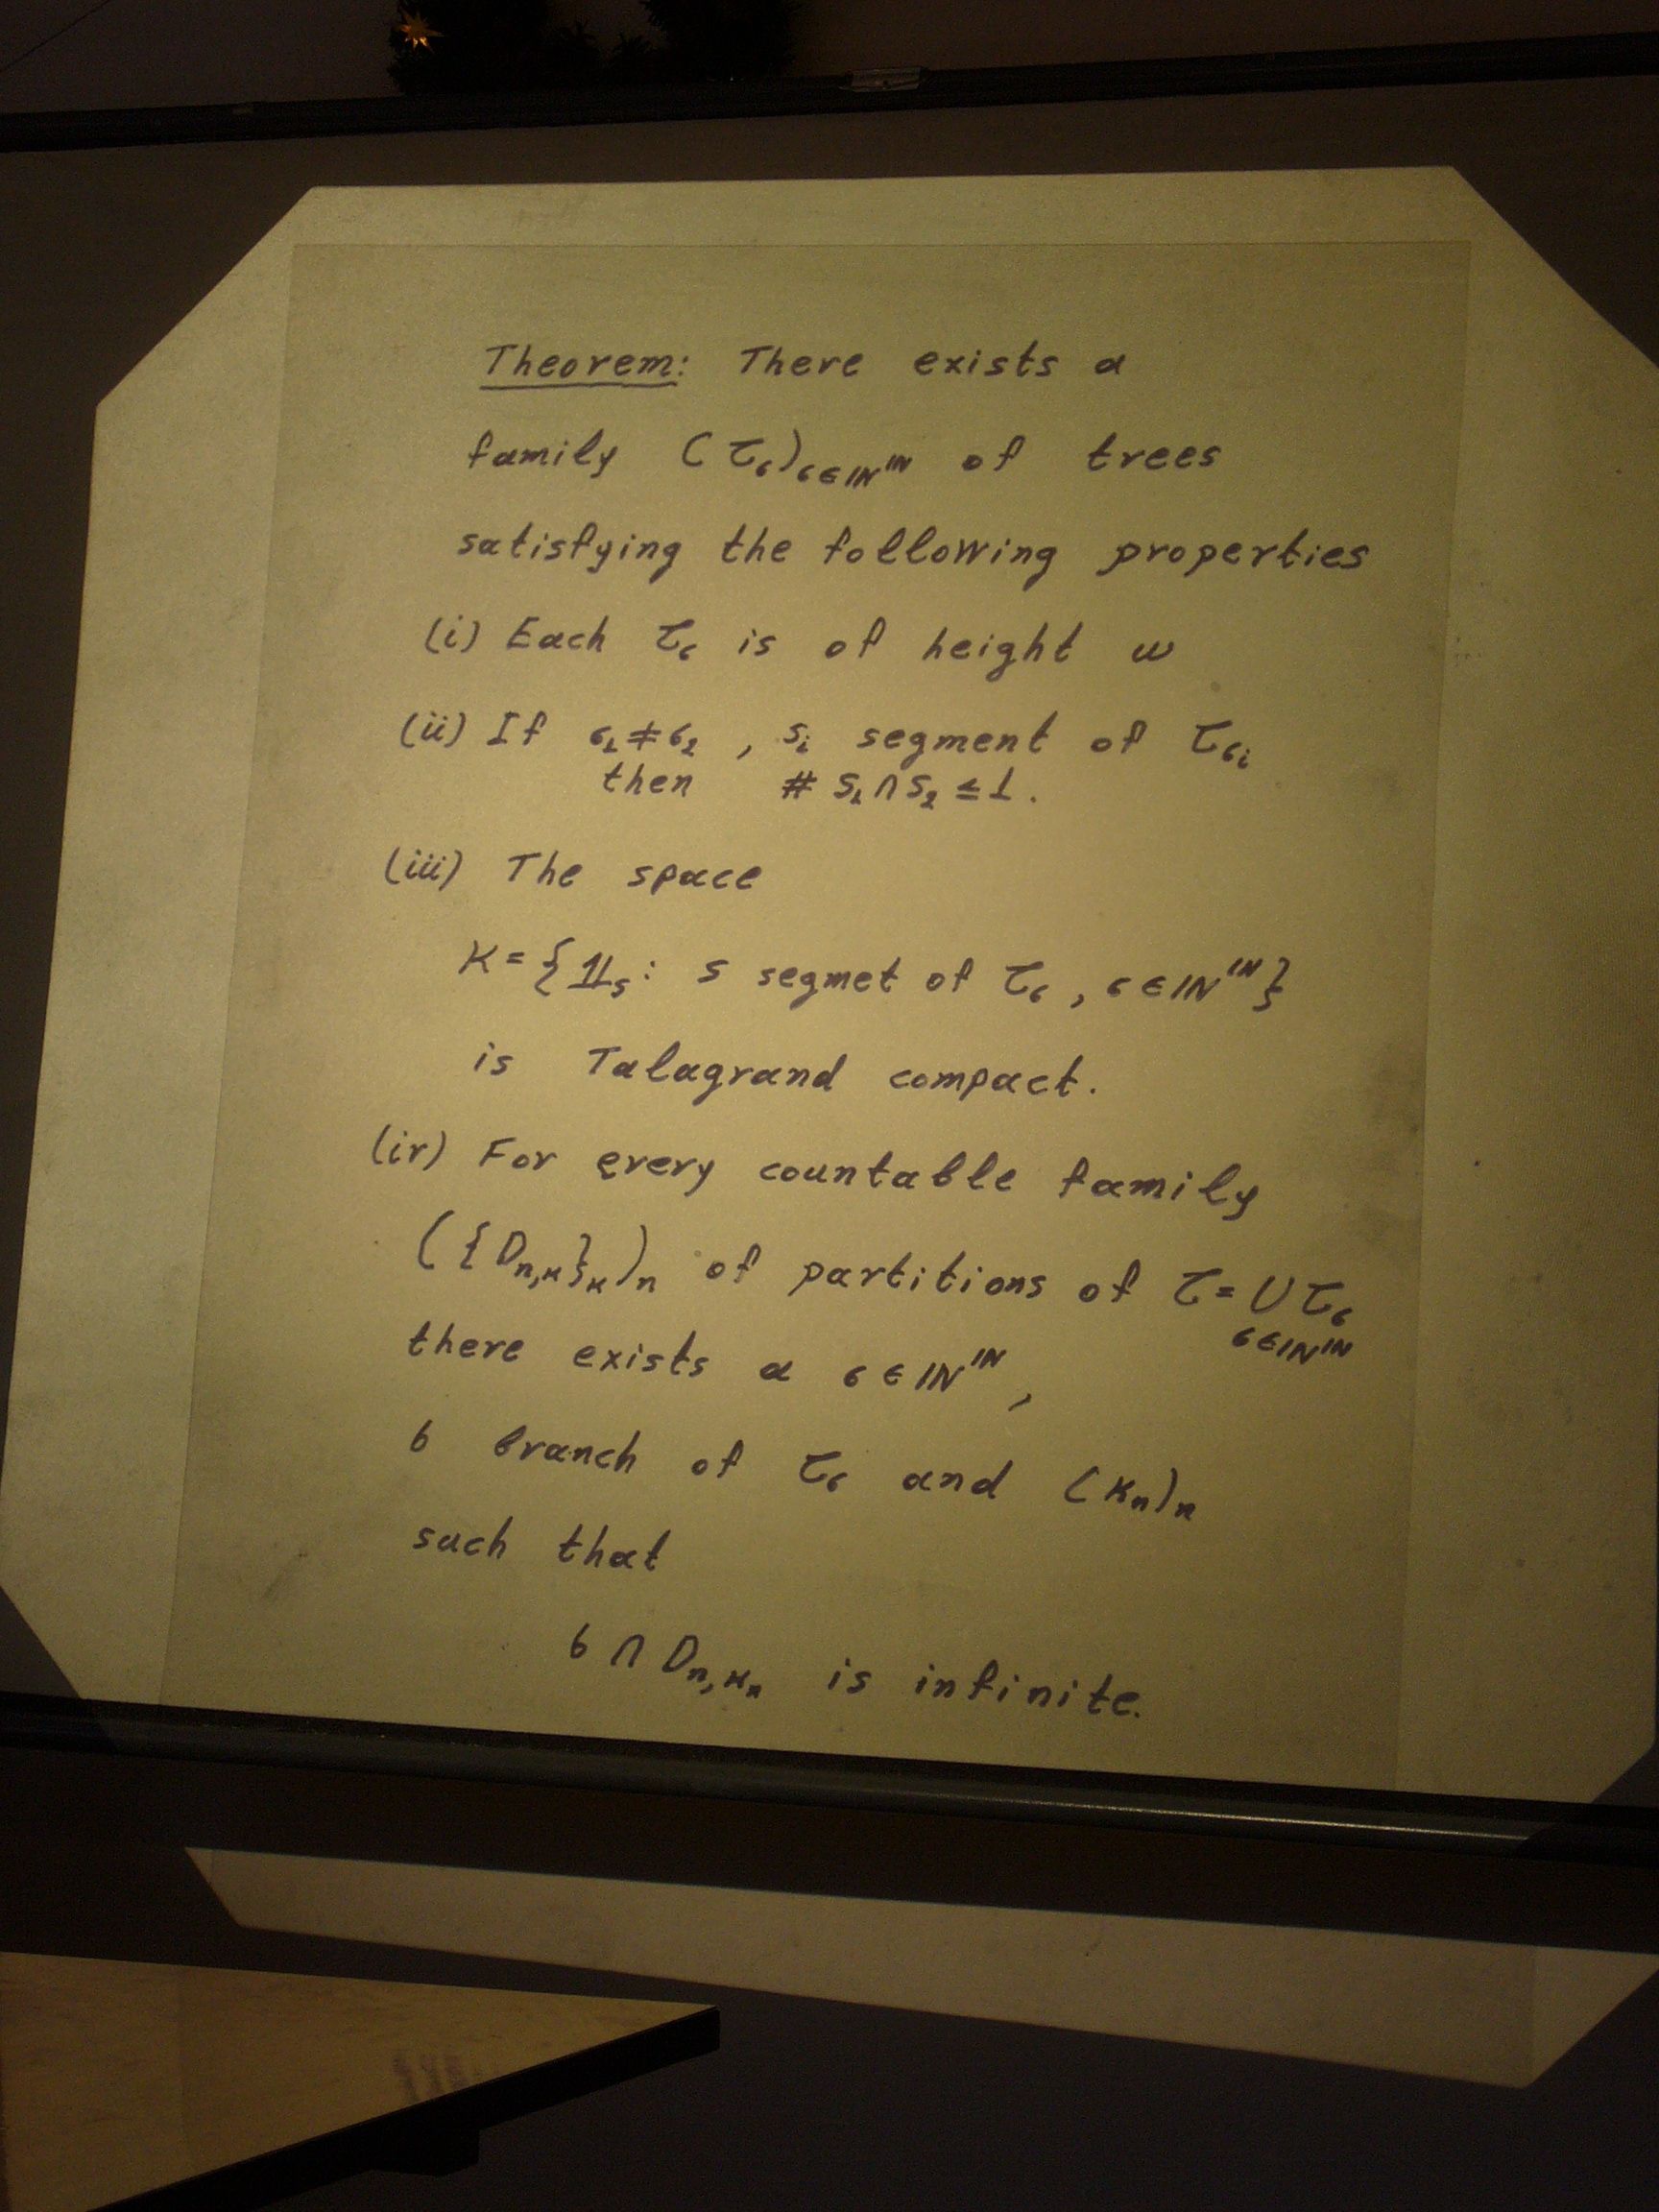 Theorem: There exists a
family (τ_σ)_{σ∈ℕ^ℕ} of trees
satisfying the following properties
(i) Each τ_σ is of height ω
(ii) If σ₁≠σ₂, s_i segment of τ_{σ_i}
then # s₁∩s₂ ≤ 1.
(iii) The space
K = {𝟙_s : s segmet of τ_σ, σ∈ℕ^ℕ}
is Talagrand compact.
(iv) For every countable family
({D_{n,k}}_k)_n of partitions of τ = ∪ τ_σ
σ∈ℕ^ℕ
there exists a σ∈ℕ^ℕ,
b branch of τ_σ and (k_n)_n
such that
b ∩ D_{n,k_n} is infinite.